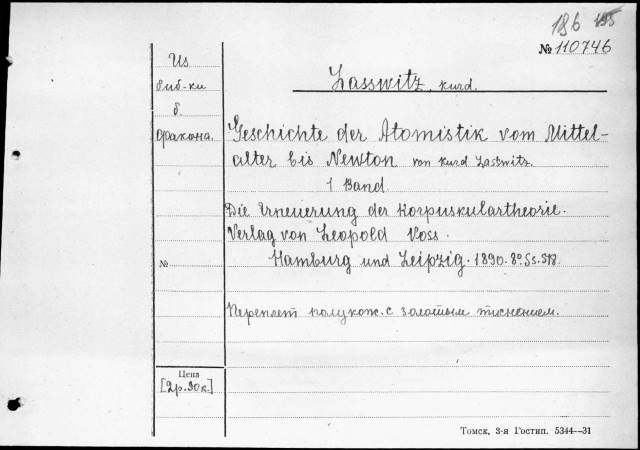 186 195
№ 110746
Из
биб-ки
б.
фракона.
Lasswitz, Kurd.
Geschichte der Atomistik vom Mittel-
alter bis Newton von Kurd Lasswitz.
1 Band
Die Erneuerung der Korpuskulartheorie.
Verlag von Leopold Voss.
Hamburg und Leipzig. 1890. 8° Ss. 518.
№
Переплет полукож. с золотым тиснением.
Цена
[2р.90к.]
Томск, 3-я Гостип. 5344—31